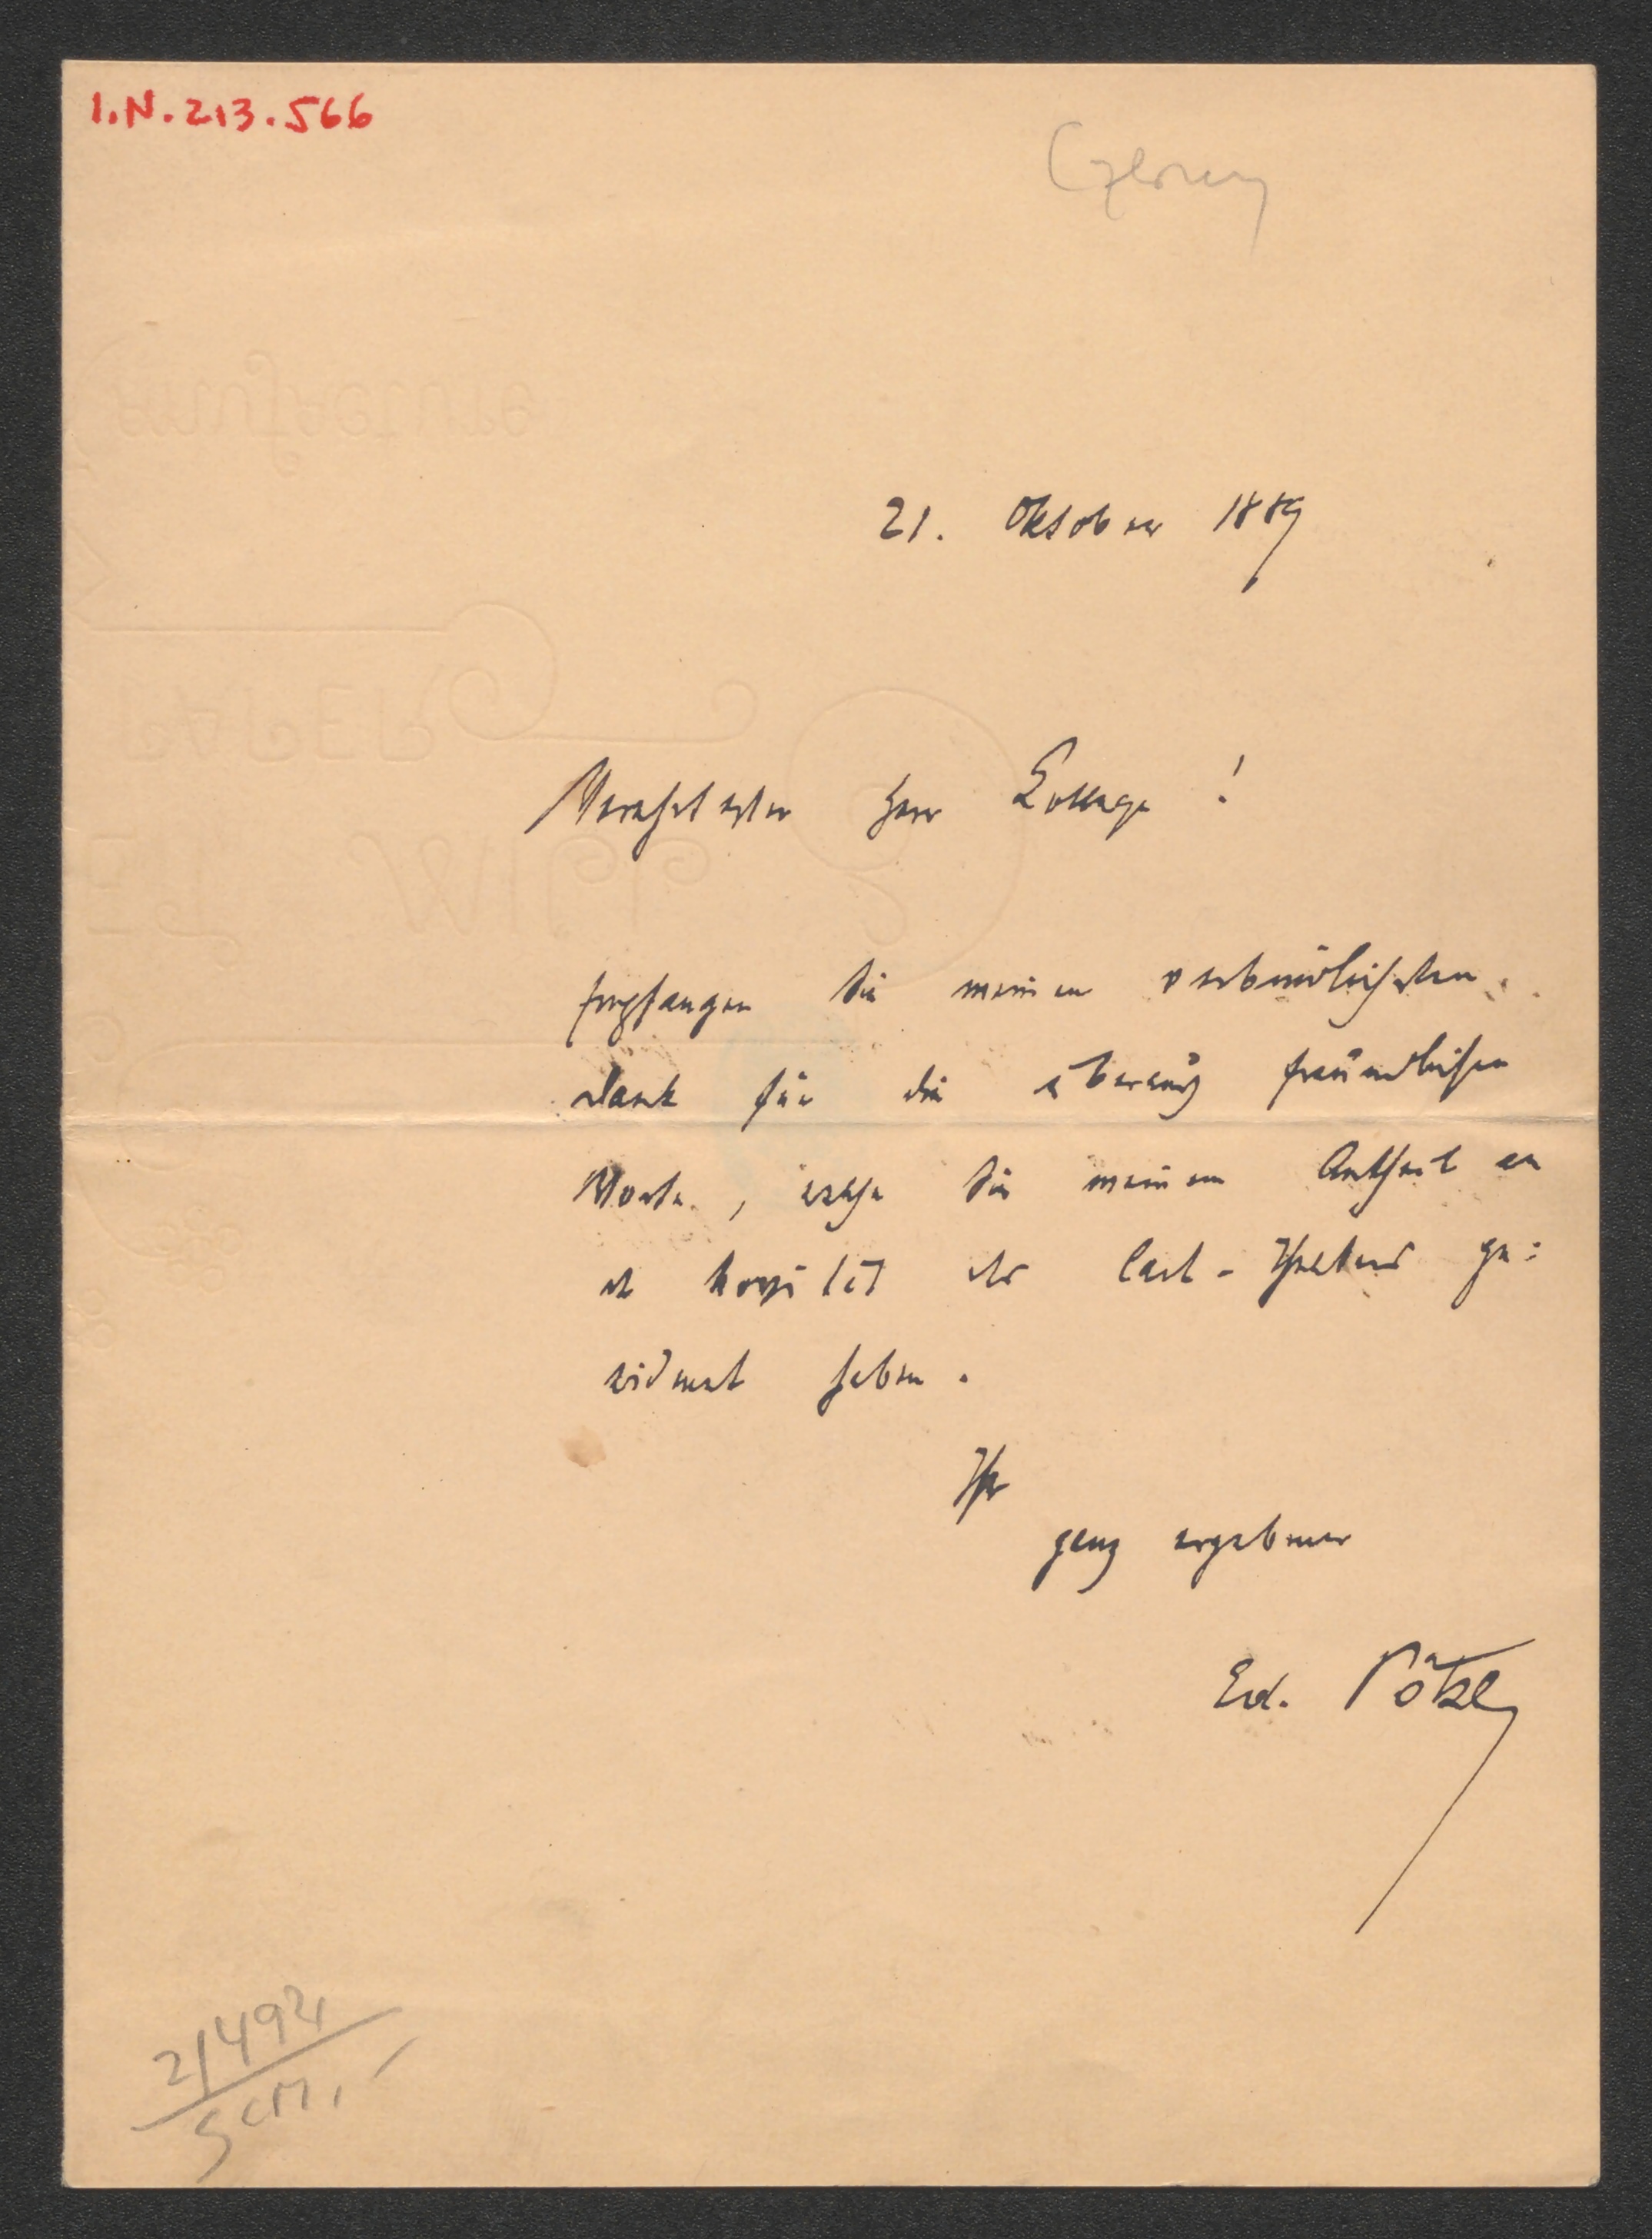 I.N.213.566
21. Oktober 1889
Verehrtester Herr Kollege!
Empfangen Sie meinen verbindlichsten
Dank für die überaus freundlichen
Worte, welche Sie meinem Antheil an
der Novität des Carl-Theaters ge=
widmet haben.
Ihr
ganz ergebener
Ed. Pötzl